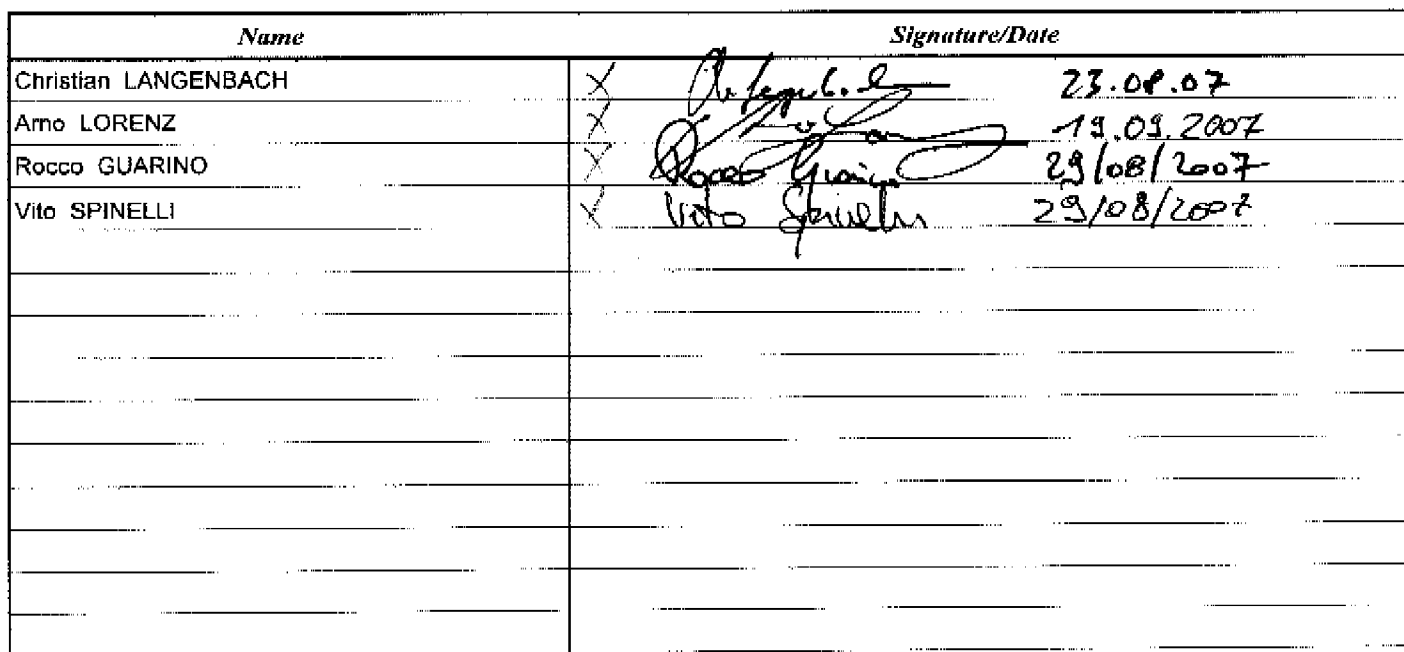 Name Signature/Date
Christian LANGENBACH X 23.08.07
Arno LORENZ X 19.09.2007
Rocco GUARINO X Rocco Guarino 29/08/2007
Vito SPINELLI X Vito Spinelli 29/08/2007